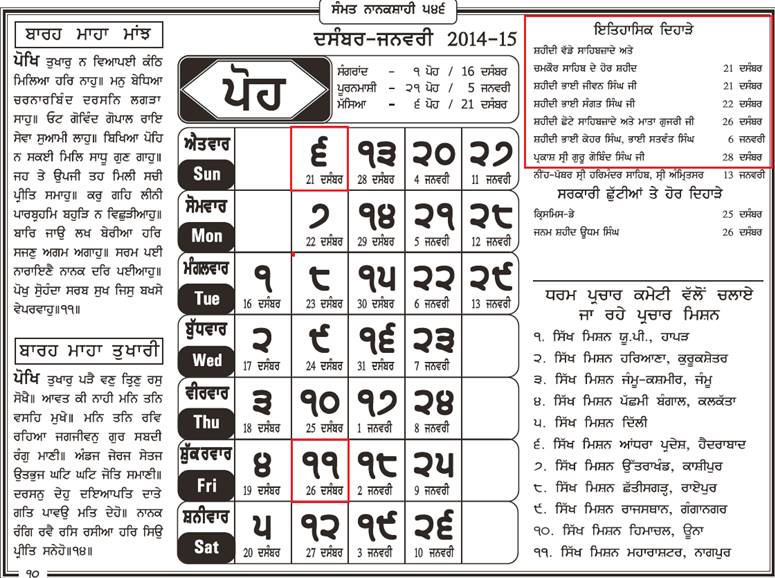 ਸੰਮਤ ਨਾਨਕਸ਼ਾਹੀ ੫੪੬
ਬਾਰਹ ਮਾਹਾ ਮਾਂਝ
ਪੋਖਿ ਤੁਖਾਰੁ ਨ ਵਿਆਪਈ ਕੰਠਿ
ਮਿਲਿਆ ਹਰਿ ਨਾਹੁ॥ ਮਨੁ ਬੇਧਿਆ
ਚਰਨਾਰਬਿੰਦ ਦਰਸਨਿ ਲਗੜਾ
ਸਾਹੁ॥ ਓਟ ਗੋਵਿੰਦ ਗੋਪਾਲ ਰਾਇ
ਸੇਵਾ ਸੁਆਮੀ ਲਾਹੁ॥ ਬਿਖਿਆ ਪੋਹਿ
ਨ ਸਕਈ ਮਿਲਿ ਸਾਧੂ ਗੁਣ ਗਾਹੁ॥
ਜਹ ਤੇ ਉਪਜੀ ਤਹ ਮਿਲੀ ਸਚੀ
ਪ੍ਰੀਤਿ ਸਮਾਹੁ॥ ਕਰੁ ਗਹਿ ਲੀਨੀ
ਪਾਰਬ੍ਰਹਮਿ ਬਹੁੜਿ ਨ ਵਿਛੁੜੀਆਹੁ॥
ਬਾਰਿ ਜਾਉ ਲਖ ਬੇਰੀਆ ਹਰਿ
ਸਜਣੁ ਅਗਮ ਅਗਾਹੁ॥ ਸਰਮ ਪਈ
ਨਾਰਾਇਣੈ ਨਾਨਕ ਦਰਿ ਪਈਆਹੁ॥
ਪੋਖੁ ਸੋਹੰਦਾ ਸਰਬ ਸੁਖ ਜਿਸੁ ਬਖਸੇ
ਵੇਪਰਵਾਹੁ॥੧੧॥
ਬਾਰਹ ਮਾਹਾ ਤੁਖਾਰੀ
ਪੋਖਿ ਤੁਖਾਰੁ ਪੜੈ ਵਣੁ ਤ੍ਰਿਣੁ ਰਸੁ
ਸੋਖੈ॥ ਆਵਤ ਕੀ ਨਾਹੀ ਮਨਿ ਤਨਿ
ਵਸਹਿ ਮੁਖੇ॥ ਮਨਿ ਤਨਿ ਰਵਿ
ਰਹਿਆ ਜਗਜੀਵਨੁ ਗੁਰ ਸਬਦੀ
ਰੰਗੁ ਮਾਣੀ॥ ਅੰਡਜ ਜੇਰਜ ਸੇਤਜ
ਉਤਭੁਜ ਘਟਿ ਘਟਿ ਜੋਤਿ ਸਮਾਣੀ॥
ਦਰਸਨੁ ਦੇਹੁ ਦਇਆਪਤਿ ਦਾਤੇ
ਗਤਿ ਪਾਵਉ ਮਤਿ ਦੇਹੋ॥ ਨਾਨਕ
ਰੰਗਿ ਰਵੈ ਰਸਿ ਰਸੀਆ ਹਰਿ ਸਿਉ
ਪ੍ਰੀਤਿ ਸਨੇਹੋ॥੧੪॥
੧੦
ਦਸੰਬਰ-ਜਨਵਰੀ 2014-15
ਪੋਹ
ਸੰਗਰਾਂਦ - ੧ ਪੋਹ / 16 ਦਸੰਬਰ
ਪੂਰਨਮਾਸ਼ੀ - ੨੧ ਪੋਹ / 5 ਜਨਵਰੀ
ਮੱਸਿਆ - ੬ ਪੋਹ / 21 ਦਸੰਬਰ
ਐਤਵਾਰ ੬ ੧੩ ੨੦ ੨੭
Sun 21 ਦਸੰਬਰ 28 ਦਸੰਬਰ 4 ਜਨਵਰੀ 11 ਜਨਵਰੀ
ਸੋਮਵਾਰ ੭ ੧੪ ੨੧ ੨੮
Mon 22 ਦਸੰਬਰ 29 ਦਸੰਬਰ 5 ਜਨਵਰੀ 12 ਜਨਵਰੀ
ਮੰਗਲਵਾਰ ੧ ੮ ੧੫ ੨੨ ੨੯
Tue 16 ਦਸੰਬਰ 23 ਦਸੰਬਰ 30 ਦਸੰਬਰ 6 ਜਨਵਰੀ 13 ਜਨਵਰੀ
ਬੁੱਧਵਾਰ ੨ ੯ ੧੬ ੨੩
Wed 17 ਦਸੰਬਰ 24 ਦਸੰਬਰ 31 ਦਸੰਬਰ 7 ਜਨਵਰੀ
ਵੀਰਵਾਰ ੩ ੧੦ ੧੭ ੨੪
Thu 18 ਦਸੰਬਰ 25 ਦਸੰਬਰ 1 ਜਨਵਰੀ 8 ਜਨਵਰੀ
ਸ਼ੁੱਕਰਵਾਰ ੪ ੧੧ ੧੮ ੨੫
Fri 19 ਦਸੰਬਰ 26 ਦਸੰਬਰ 2 ਜਨਵਰੀ 9 ਜਨਵਰੀ
ਸ਼ਨੀਵਾਰ ੫ ੧੨ ੧੯ ੨੬
Sat 20 ਦਸੰਬਰ 27 ਦਸੰਬਰ 3 ਜਨਵਰੀ 10 ਜਨਵਰੀ
ਇਤਿਹਾਸਿਕ ਦਿਹਾੜੇ
ਸ਼ਹੀਦੀ ਵੱਡੇ ਸਾਹਿਬਜ਼ਾਦੇ ਅਤੇ
ਚਮਕੌਰ ਸਾਹਿਬ ਦੇ ਹੋਰ ਸ਼ਹੀਦ 21 ਦਸੰਬਰ
ਸ਼ਹੀਦੀ ਭਾਈ ਜੀਵਨ ਸਿੰਘ ਜੀ 21 ਦਸੰਬਰ
ਸ਼ਹੀਦੀ ਭਾਈ ਸੰਗਤ ਸਿੰਘ ਜੀ 22 ਦਸੰਬਰ
ਸ਼ਹੀਦੀ ਛੋਟੇ ਸਾਹਿਬਜ਼ਾਦੇ ਅਤੇ ਮਾਤਾ ਗੁਜਰੀ ਜੀ 26 ਦਸੰਬਰ
ਸ਼ਹੀਦੀ ਭਾਈ ਕੇਹਰ ਸਿੰਘ, ਭਾਈ ਸਤਵੰਤ ਸਿੰਘ 6 ਜਨਵਰੀ
ਪ੍ਰਕਾਸ਼ ਸ੍ਰੀ ਗੁਰੂ ਗੋਬਿੰਦ ਸਿੰਘ ਜੀ 28 ਦਸੰਬਰ
ਨੀਂਹ-ਪੱਥਰ ਸ੍ਰੀ ਹਰਿਮੰਦਰ ਸਾਹਿਬ, ਸ੍ਰੀ ਅੰਮ੍ਰਿਤਸਰ 13 ਜਨਵਰੀ
ਸਰਕਾਰੀ ਛੁੱਟੀਆਂ ਤੇ ਹੋਰ ਦਿਹਾੜੇ
ਕ੍ਰਿਸਮਿਸ-ਡੇ 25 ਦਸੰਬਰ
ਜਨਮ ਸ਼ਹੀਦ ਊਧਮ ਸਿੰਘ 26 ਦਸੰਬਰ
ਧਰਮ ਪ੍ਰਚਾਰ ਕਮੇਟੀ ਵੱਲੋਂ ਚਲਾਏ
ਜਾ ਰਹੇ ਪ੍ਰਚਾਰ ਮਿਸ਼ਨ
੧. ਸਿੱਖ ਮਿਸ਼ਨ ਯੂ.ਪੀ., ਹਾਪੜ
੨. ਸਿੱਖ ਮਿਸ਼ਨ ਹਰਿਆਣਾ, ਕੁਰੂਕਸ਼ੇਤਰ
੩. ਸਿੱਖ ਮਿਸ਼ਨ ਜੰਮੂ-ਕਸ਼ਮੀਰ, ਜੰਮੂ
੪. ਸਿੱਖ ਮਿਸ਼ਨ ਪੱਛਮੀ ਬੰਗਾਲ, ਕਲਕੱਤਾ
੫. ਸਿੱਖ ਮਿਸ਼ਨ ਦਿੱਲੀ
੬. ਸਿੱਖ ਮਿਸ਼ਨ ਆਂਧਰਾ ਪ੍ਰਦੇਸ਼, ਹੈਦਰਾਬਾਦ
੭. ਸਿੱਖ ਮਿਸ਼ਨ ਉੱਤਰਾਖੰਡ, ਕਾਸ਼ੀਪੁਰ
੮. ਸਿੱਖ ਮਿਸ਼ਨ ਛੱਤੀਸਗੜ੍ਹ, ਰਾਏਪੁਰ
੯. ਸਿੱਖ ਮਿਸ਼ਨ ਰਾਜਸਥਾਨ, ਗੰਗਾਨਗਰ
੧੦. ਸਿੱਖ ਮਿਸ਼ਨ ਹਿਮਾਚਲ, ਊਨਾ
੧੧. ਸਿੱਖ ਮਿਸ਼ਨ ਮਹਾਰਾਸ਼ਟਰ, ਨਾਗਪੁਰ